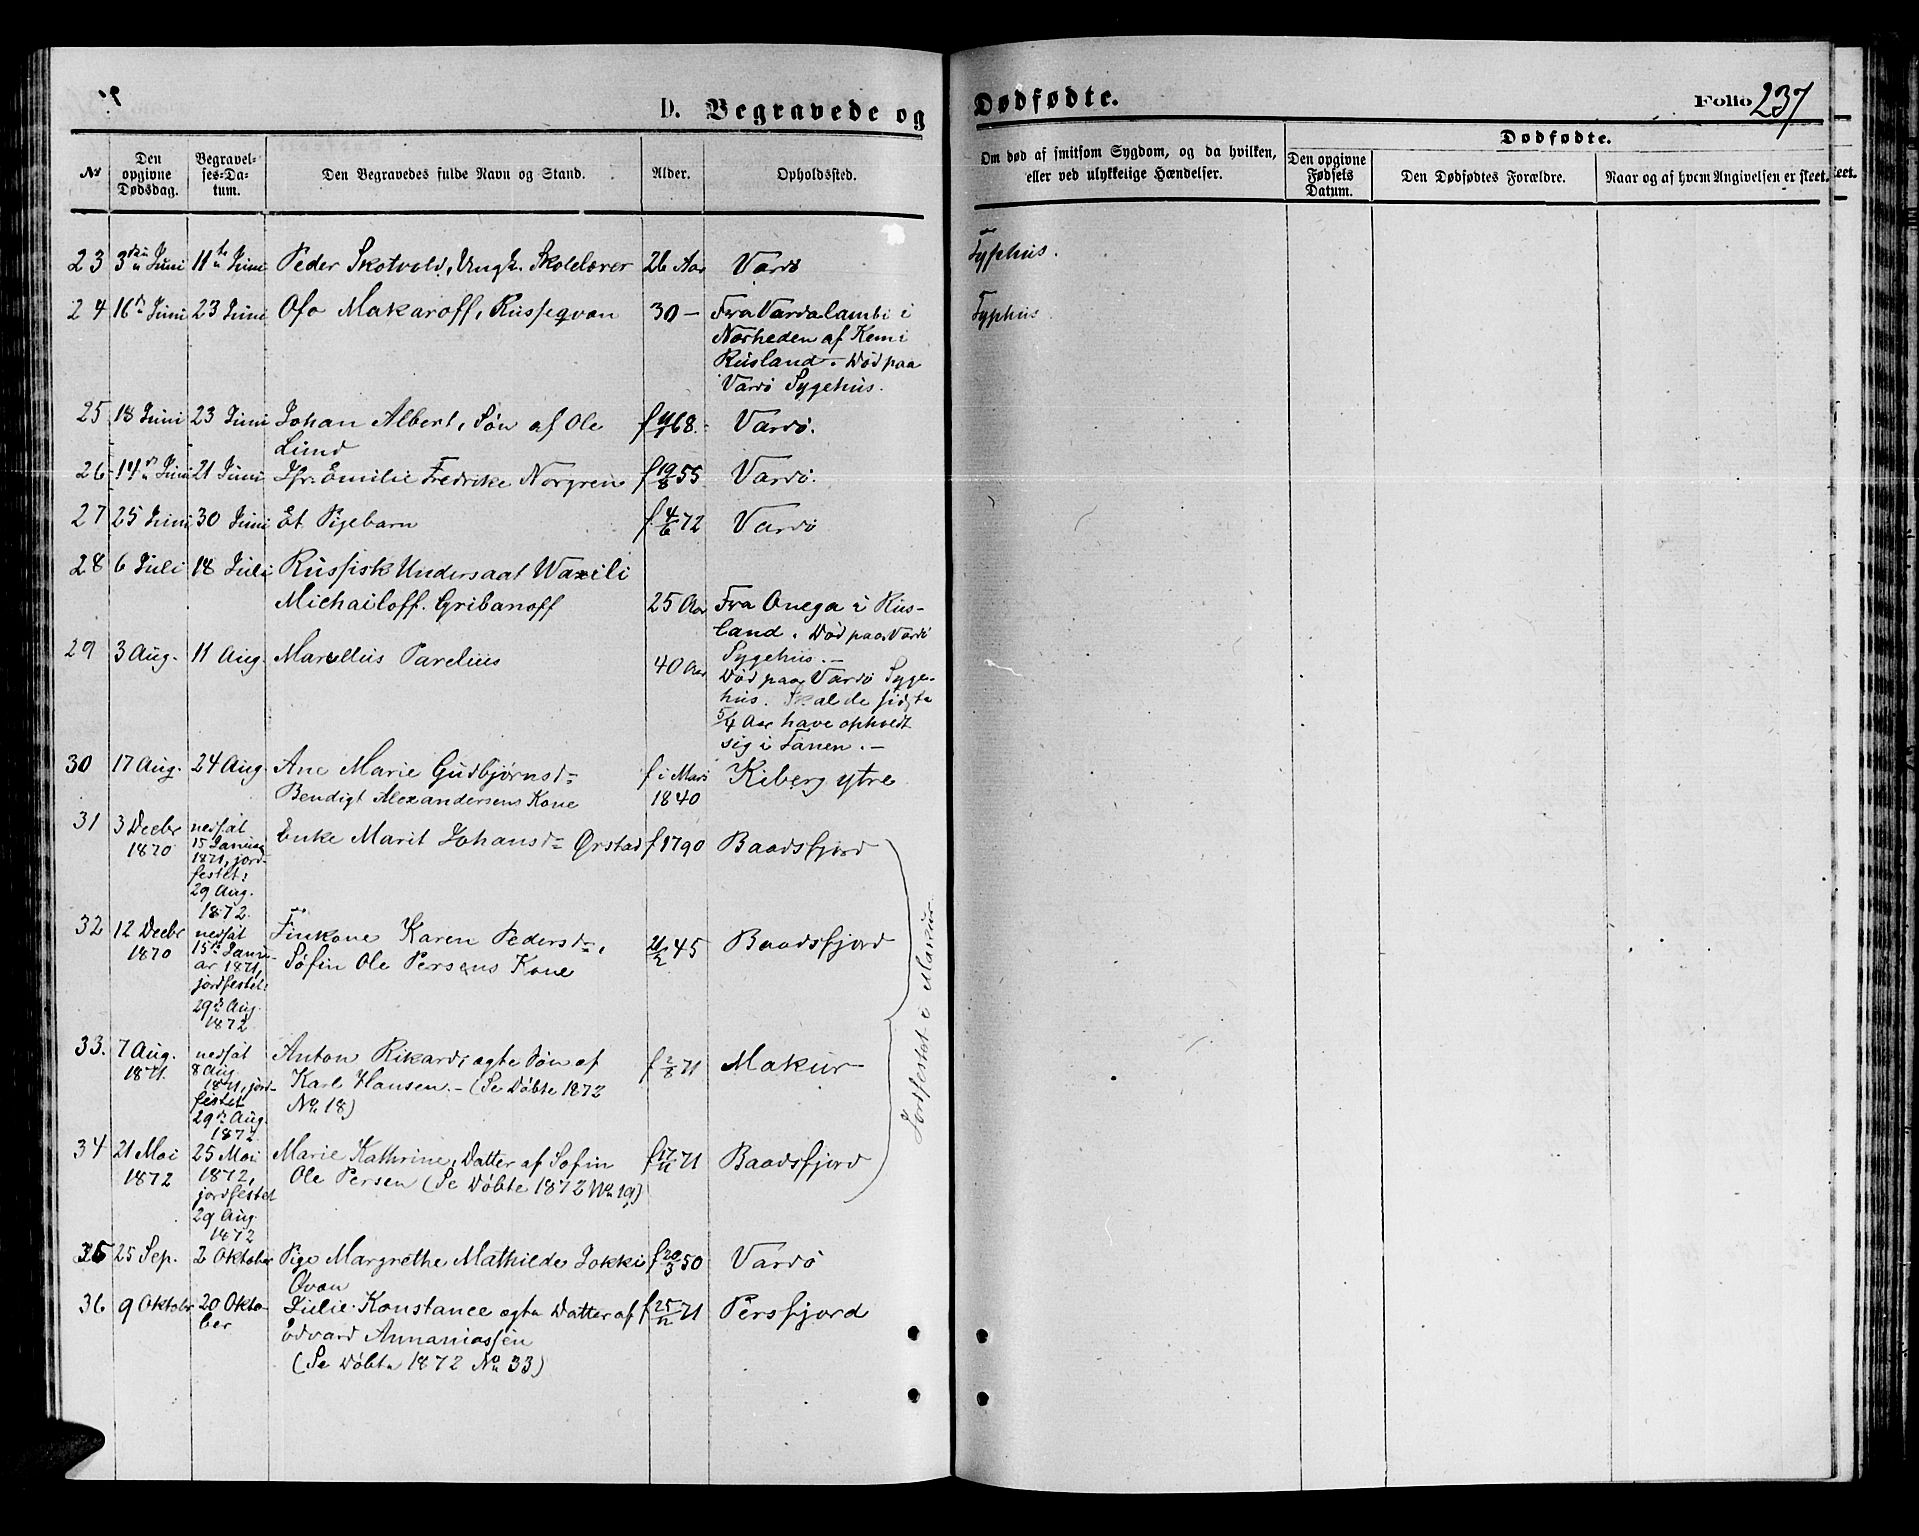 D. Begravede og
Dødfødte.
Folio 237
No
Den opgivne Dødsdag.
Begravel-ses-Da-tum.
Den Begravedes fulde Navn og Stand.
Alder.
Opholdssted.
Om død af smitsom Sygdom, og da hvilken, eller ved ulykkelige Hændelser.
Dødfødte.
Den opgivne Fødsels Datum.
Den Dødfødtes Forældre.
Naar og af hvem Angivelsen er skeet.
23 3die Juni 11te Juni Peder Skotvold, Ungk. Skolelærer 26 Aar Vardö Typhus.
24 16de Juni 23 Juni Ofo Makaroff, Russeqvæn 30 — Fra Vardalambi i Typhus.
Nærheden af Kemi
Rusland. Död paa
Vardö Sygehus.
25 18 Juni 23 Juni Johan Albert, Sön af Ole 68. Vardö.
Lund
26 14de Juni 21 Juni Jfr. Emilie Fredrike Norgren f 19/8 55 Vardö.
27 25 Juni 30 Juni Et Pigebarn f. 4/6 72 Vardö
28 6 Juli 18 Juli Russisk Undersaat Wasili
Michailoff. Gribanoff 25 Aar Fra Onega i Rus-
land. Död paa Vardö
Sygehus. —
29 3 Aug. 11 Aug. Marellus Parelius 40 Aar Död paa Vardö Syge-
hus. Skal de sidste
5/4 Aar have opholdt
sig i Tanen. —
30 17 Aug. 24 Aug. Ane Marie Gudbjørnsd= f i Mars Kiberg ytre
Bendigt Alexandersens Kone 1840
31 3 Decbr 1870 nedsat 15 Januar 1871, jord-festet: 29 Aug. 1872. Enke Marit Johansd= Ørstad f 1790 Baadsfjord
32 12 Decbr 1870 nedsat 15de Janu-ar 1871, jordfestet: 29de Aug. 1872. Finkone Karen Pedersd=, 21/2 45 Baadsfjord
Söfin Ole Persens Kone
33. 7 Aug. 1871. nedsat 8 Aug. 1871, jord-festet 29de Aug. 1872. Anton Rikard, ægte Sön af f 2/8 71 Makur
Karl Hansen. — (Se Döbte 1872
No 18)
34 21 Mai 1872 25 Mai 1872, jordfestet 29 Aug 1872 Marie Kathrine, Datter af Söfin f 17/11 71 Baadsfjord
Ole Persen (Se Döbte 1872 No 19)
Jordfestet i Makur.
35 25 Sep. 2 Oktober Pige Margrethe Mathilde Jokki f 20/3 50 Vardö
Qvæn
36 9 Oktobr 20 Okto-ber Julie Konstance ægte Datter af f 25/11 71 Persfjord
Edvard Annaniassen
(Se Döbte 1872 No 33)